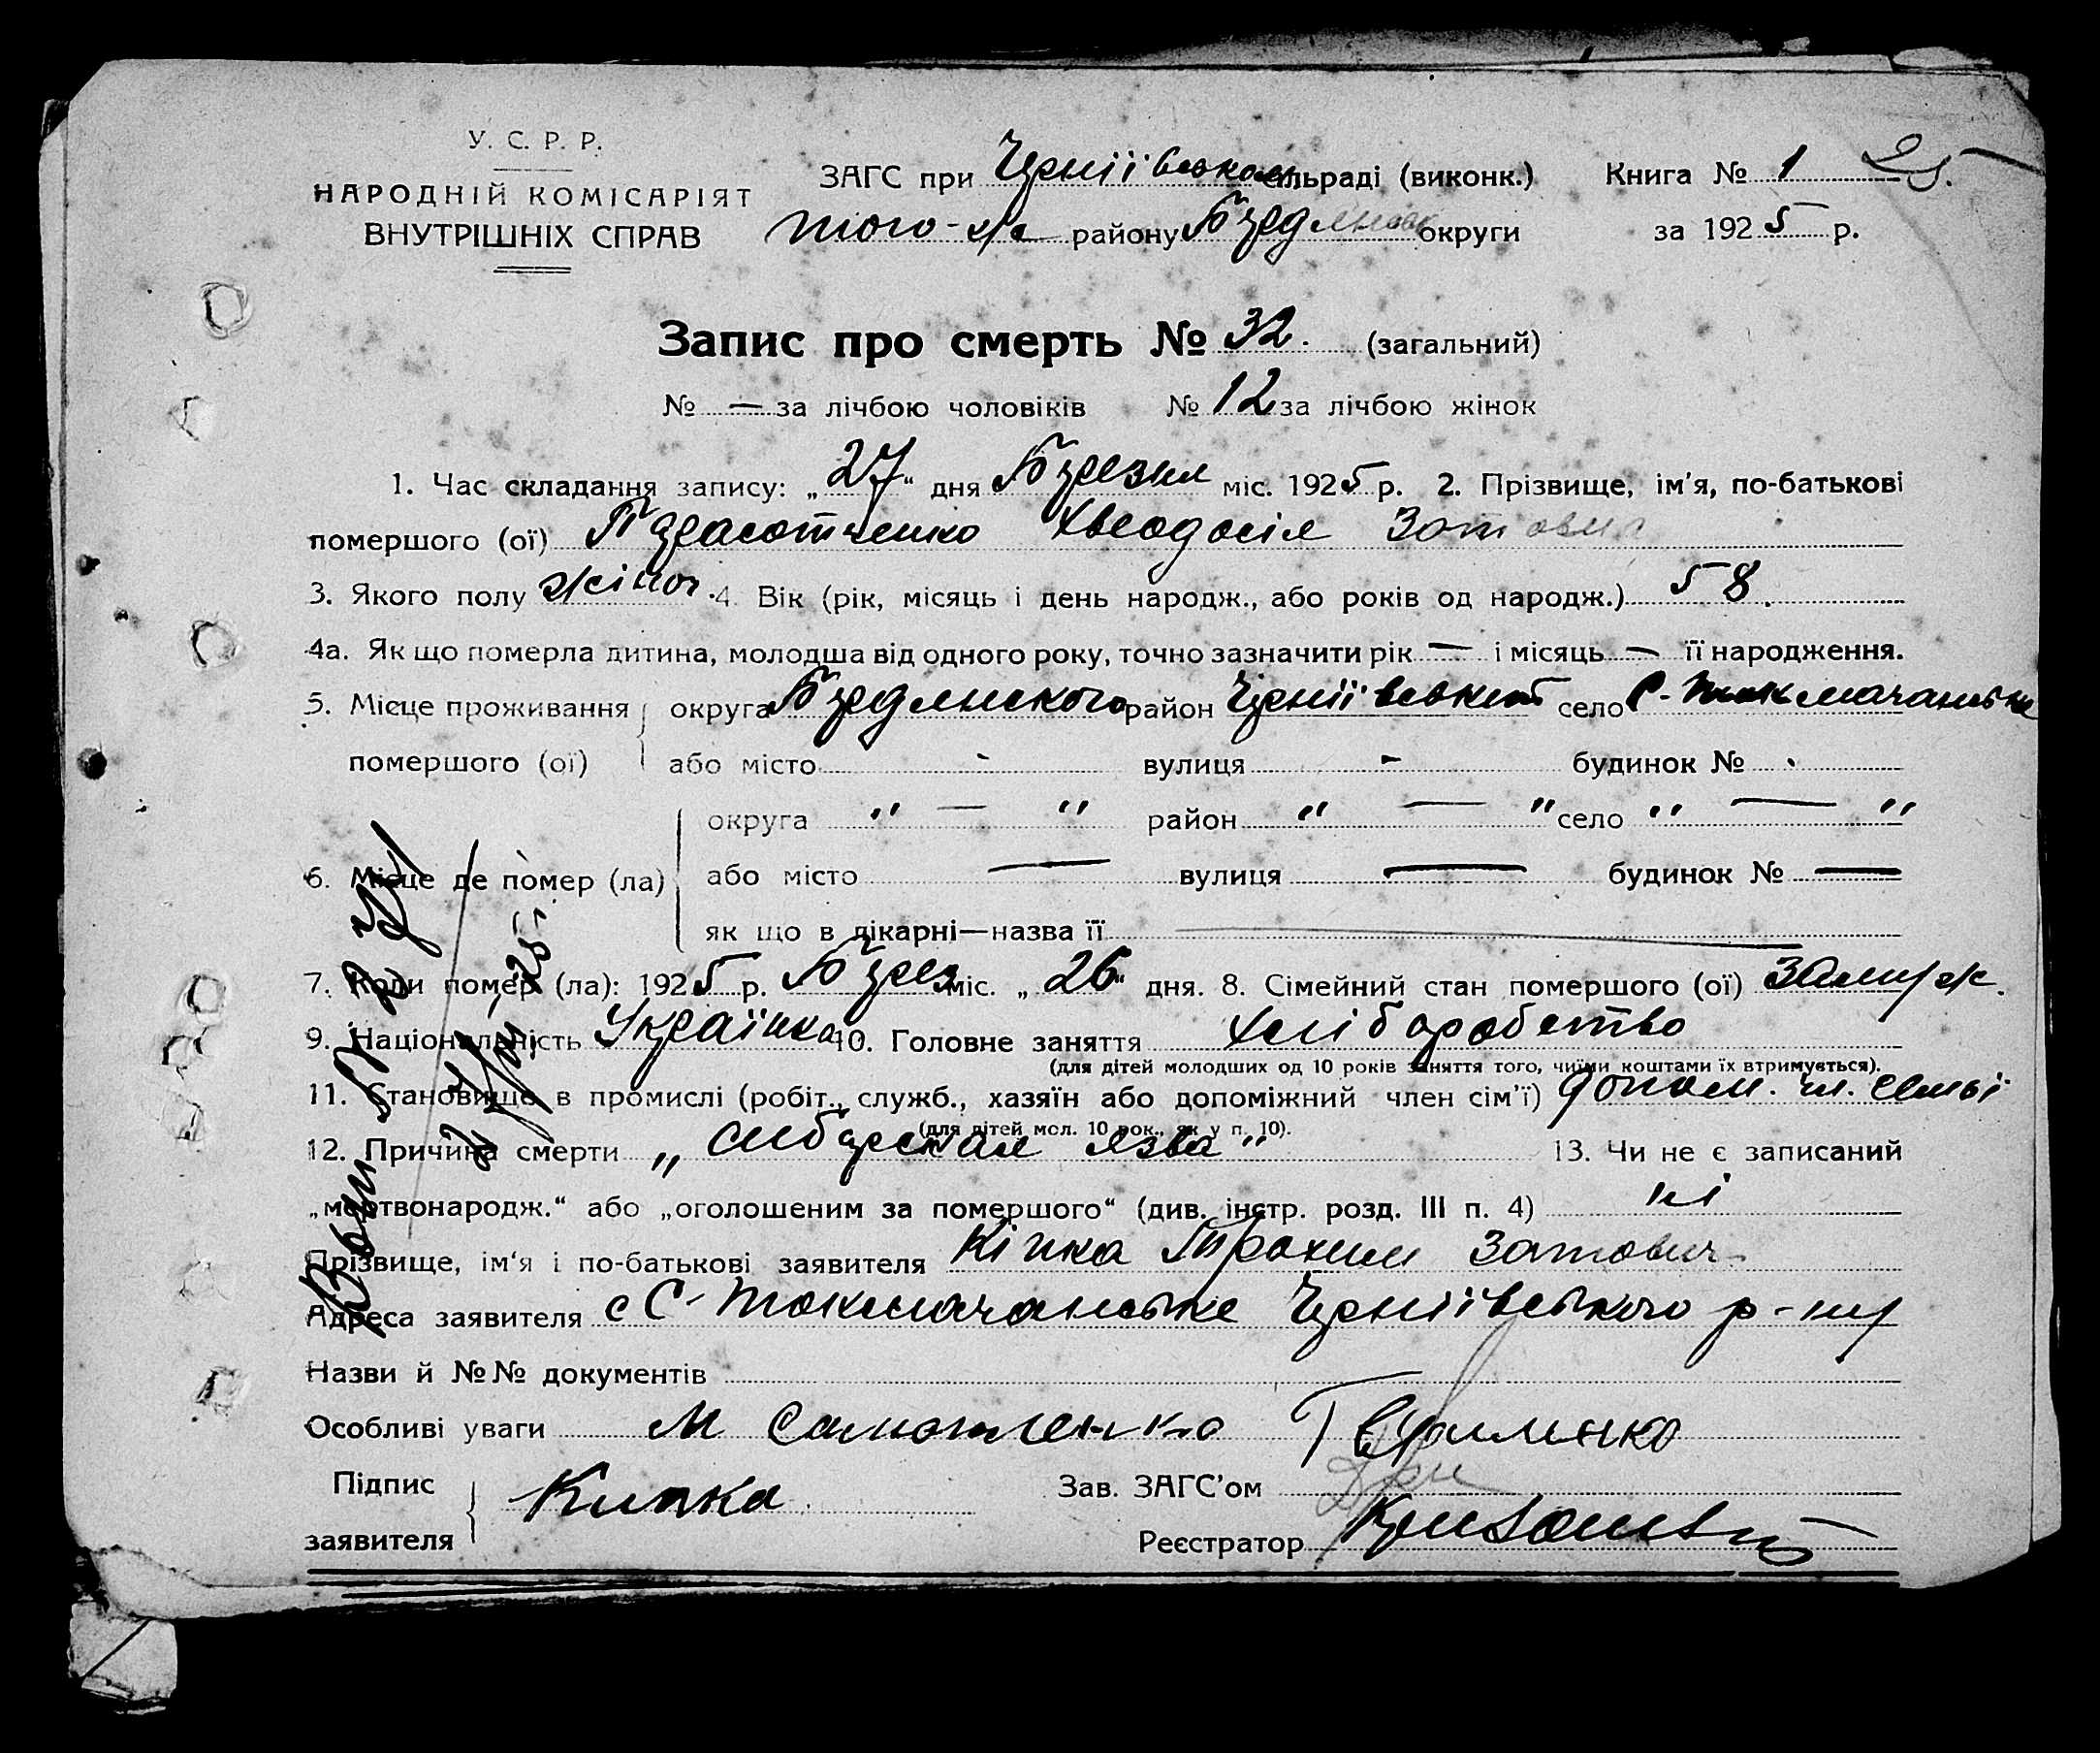 У. С. Р. Р.
НАРОДНІЙ КОМІСАРІЯТ
ВНУТРІШНІХ СПРАВ
ЗАГС при Черніївськом сільраді (виконк.) Книга № 1 25.
того-ж району Бердянськ округи за 1925 р.
Запис про смерть № 32. (загальний)
№ — за лічбою чоловіків № 12 за лічбою жінок
1. Час складання запису: „27“ дня Березня міс. 1925 р. 2. Прізвище, ім'я, по-батькові
помершого (ої) Хведосія Зотовна
3. Якого полу жіноч. 4. Вік (рік, місяць і день народж., або років од народж.) 58.
4а. Як що померла дитина, молодша від одного року, точно зазначити рік — і місяць — її народження.
5. Місце проживання округа Бердянского район Черніївський село С-Токмачанське
помершого (ої) або місто - вулиця - будинок №
округа " — " район " — " село " — "
6. Місце де помер (ла) або місто — вулиця — будинок № —
як що в лікарні—назва її —
7. Коли помер (ла): 1925 р. Берез міс. „26“ дня. 8. Сімейний стан помершого (ої) замуж.
9. Національність Українка 10. Головне заняття хліборобство
(для дітей молодших од 10 років заняття того, чиїми коштами їх втримується).
11. Становище в промислі (робіт., служб., хазяїн або допоміжний член сім'ї) допом. чл. семьі
(для дітей мол. 10 рок., як у п. 10).
12. Причина смерти „сибірская язва“ 13. Чи не є записаний
„мертвонародж.“ або „оголошеним за помершого“ (див. інстр. розд. III п. 4) ні
Прізвище, ім'я і по-батькові заявителя Кіпка Трохим Зотович
Адреса заявителя с С-Токмачанське Черніївського р-ну
Назви й №№ документів
Особливі уваги М
Підпис
заявителя Кипка
Зав. ЗАГС'ом
Реєстратор